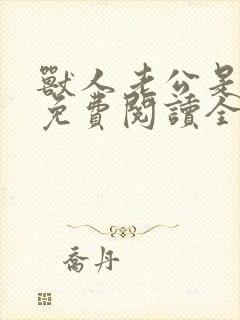 獸人老公是
免費閱讀全
喬丹